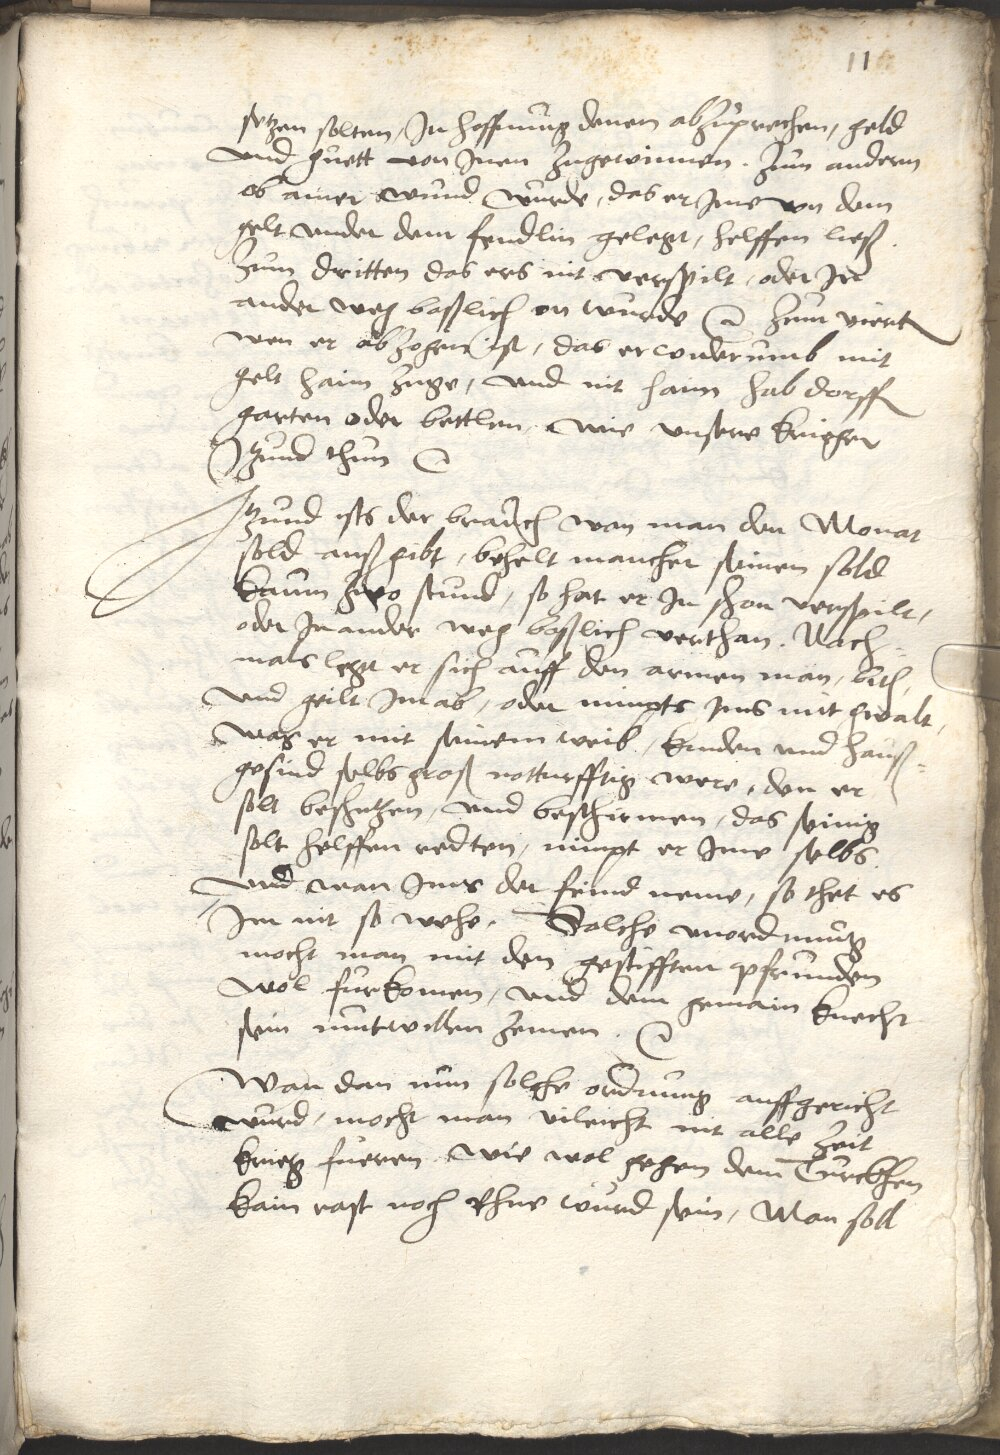 11
setzen solten, In hoffnung denen abzuprechen, geld
vnd guett von Inen zugewinnen. Zum andern
ob ainer wund wurde, das er Ime von dem
gelt vnder dem fendlin gelegt, helffen ließ.
Zum dritten das ers nit verspilt, oder In
ander weg boslich on wurde Zum viert
wen er abzogen ist, das er widerumb mit
gelt haim zuge, vnd nit haim hab dorff
garten oder bettlen, wie vnsere krieger
Itzund thun
Itzund ists der brauch wan man den Monat
sold auß gibt, behelt mancher seinen sold
kaum zwo stund, so hat er In schon verspilt,
oder In ander weg boßlich verthan. Nach-
mals legt er sich auff den armen man,
vnd geilt Im ab, oder nimpts Ims mit gwalt,
was er mit seinem weib, kinden vnd hauß-
gesind selbs groß notturfftig were, den er
solt beschutzen, vnd beschirmen, das seinig
solt helffen redten, nimpt er Ime selbs.
vnd wan Ims der feind neme, so thet es
Im nit so wehe. Solche vnordnung
mocht man mit den gestifften pfrunden
wol furkomen, vnd dem gemain knecht
sein mutwillen zemen.
Wan dan nun solche ordnung auffgericht
wurd, mocht man vileicht nit alle zeit
krieg fueren wie wol gegen dem Turckhen
kain rast noch Rhue wurd sein, Man soll